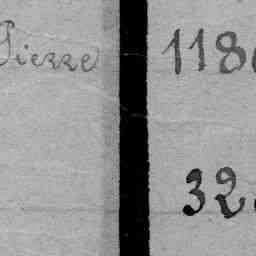 Pierre 118
32